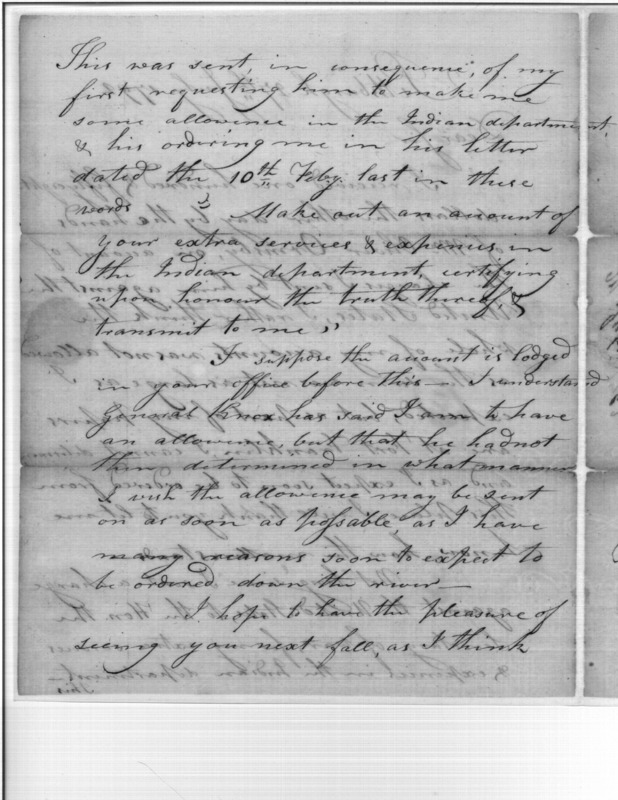 This was sent, in consequence, of my
first requesting him to make me
some allowence in the Indian department,
& his ordering me in his letter
dated the 10th Feby. last in these
words " Make out an account of
your extra services & expences in
the Indian department, certifying
upon honour the truth thereof, &
transmit to me "
I suppose the account is lodged
in your office before this — I understand
General Knox has said, I am to have
an allowence, but that he had not
then determined in what manner
I wish the allowence may be sent
on as soon as possable as I have
many reasons soon to expect to
be ordered down the river —
I hope to have the pleasure of
seeing you next fall, as I think